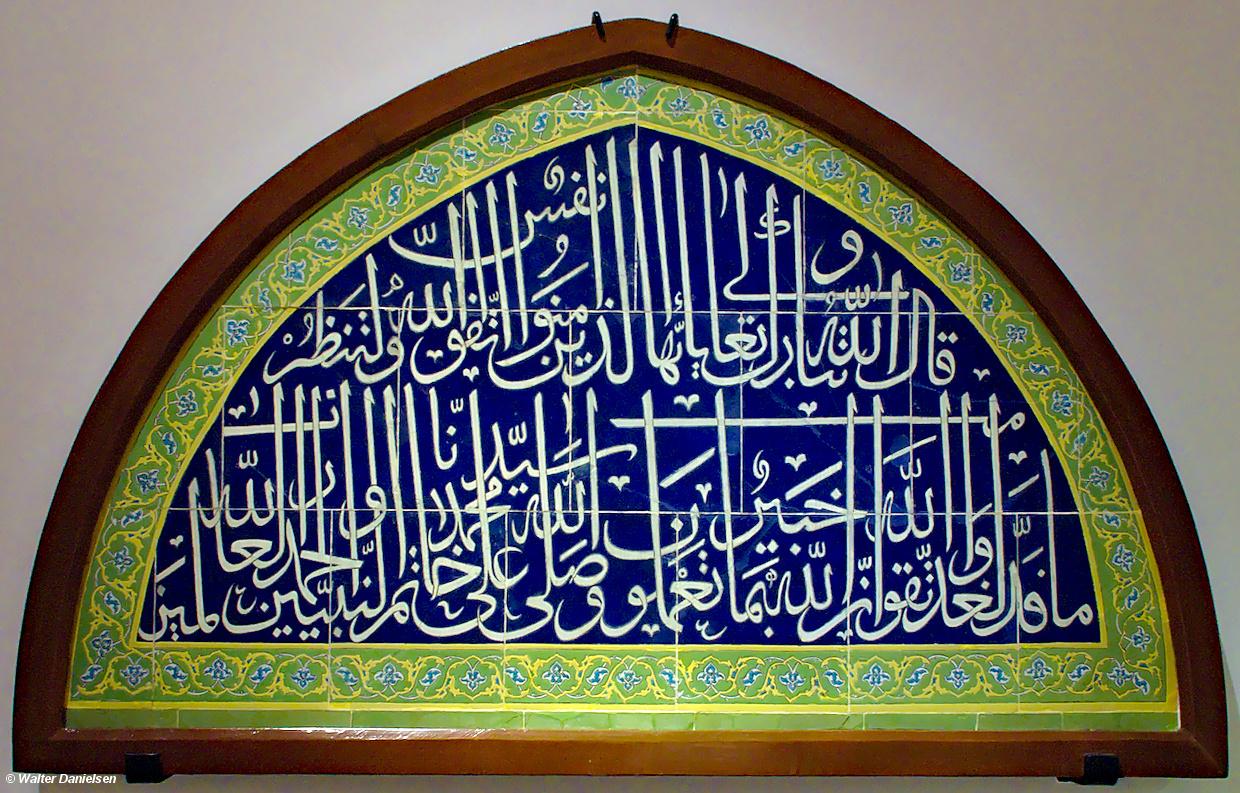 قال الله تبارك وتعالى يا أيها الذين آمنوا اتقوا الله ولتنظر نفس
ما قدمت لغد واتقوا الله إن الله خبير بما تعملون وصلى الله على سيدنا محمد خاتم النبيين والحمد لله رب العالمين
© Walter Danielsen